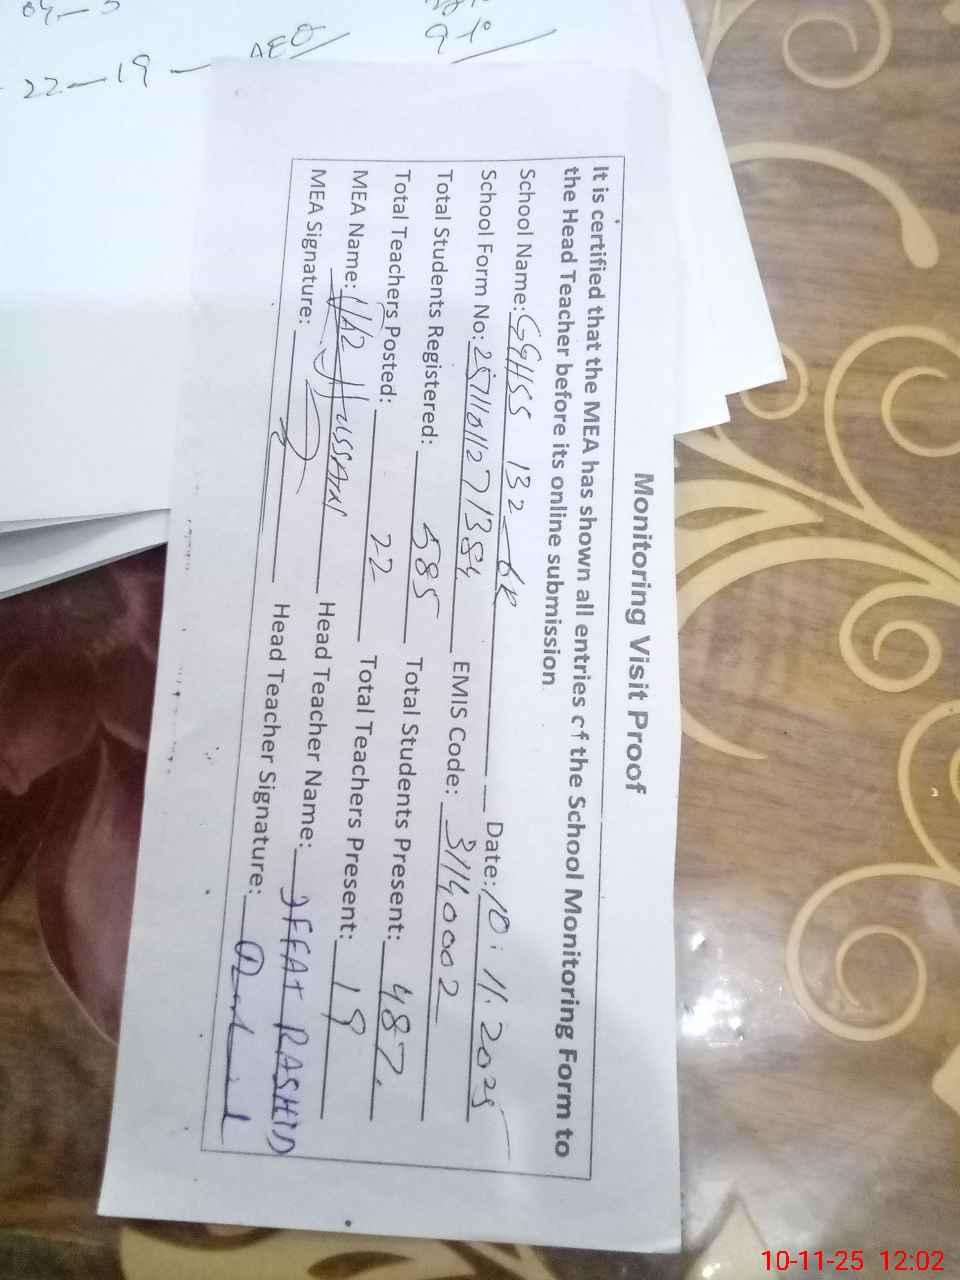 22 - 19 - AEO/
Monitoring Visit Proof
It is certified that the MEA has shown all entries of the School Monitoring Form to
the Head Teacher before its online submission
School Name: GGHSS 132-6R Date: 10.11.2025
School Form No: EMIS Code: 31140002
Total Students Registered: 585 Total Students Present: 487.
Total Teachers Posted: 22 Total Teachers Present: 19
MEA Name: Hussain Head Teacher Name: IFFAT RASHID
MEA Signature: Head Teacher Signature:
10-11-25 12:02